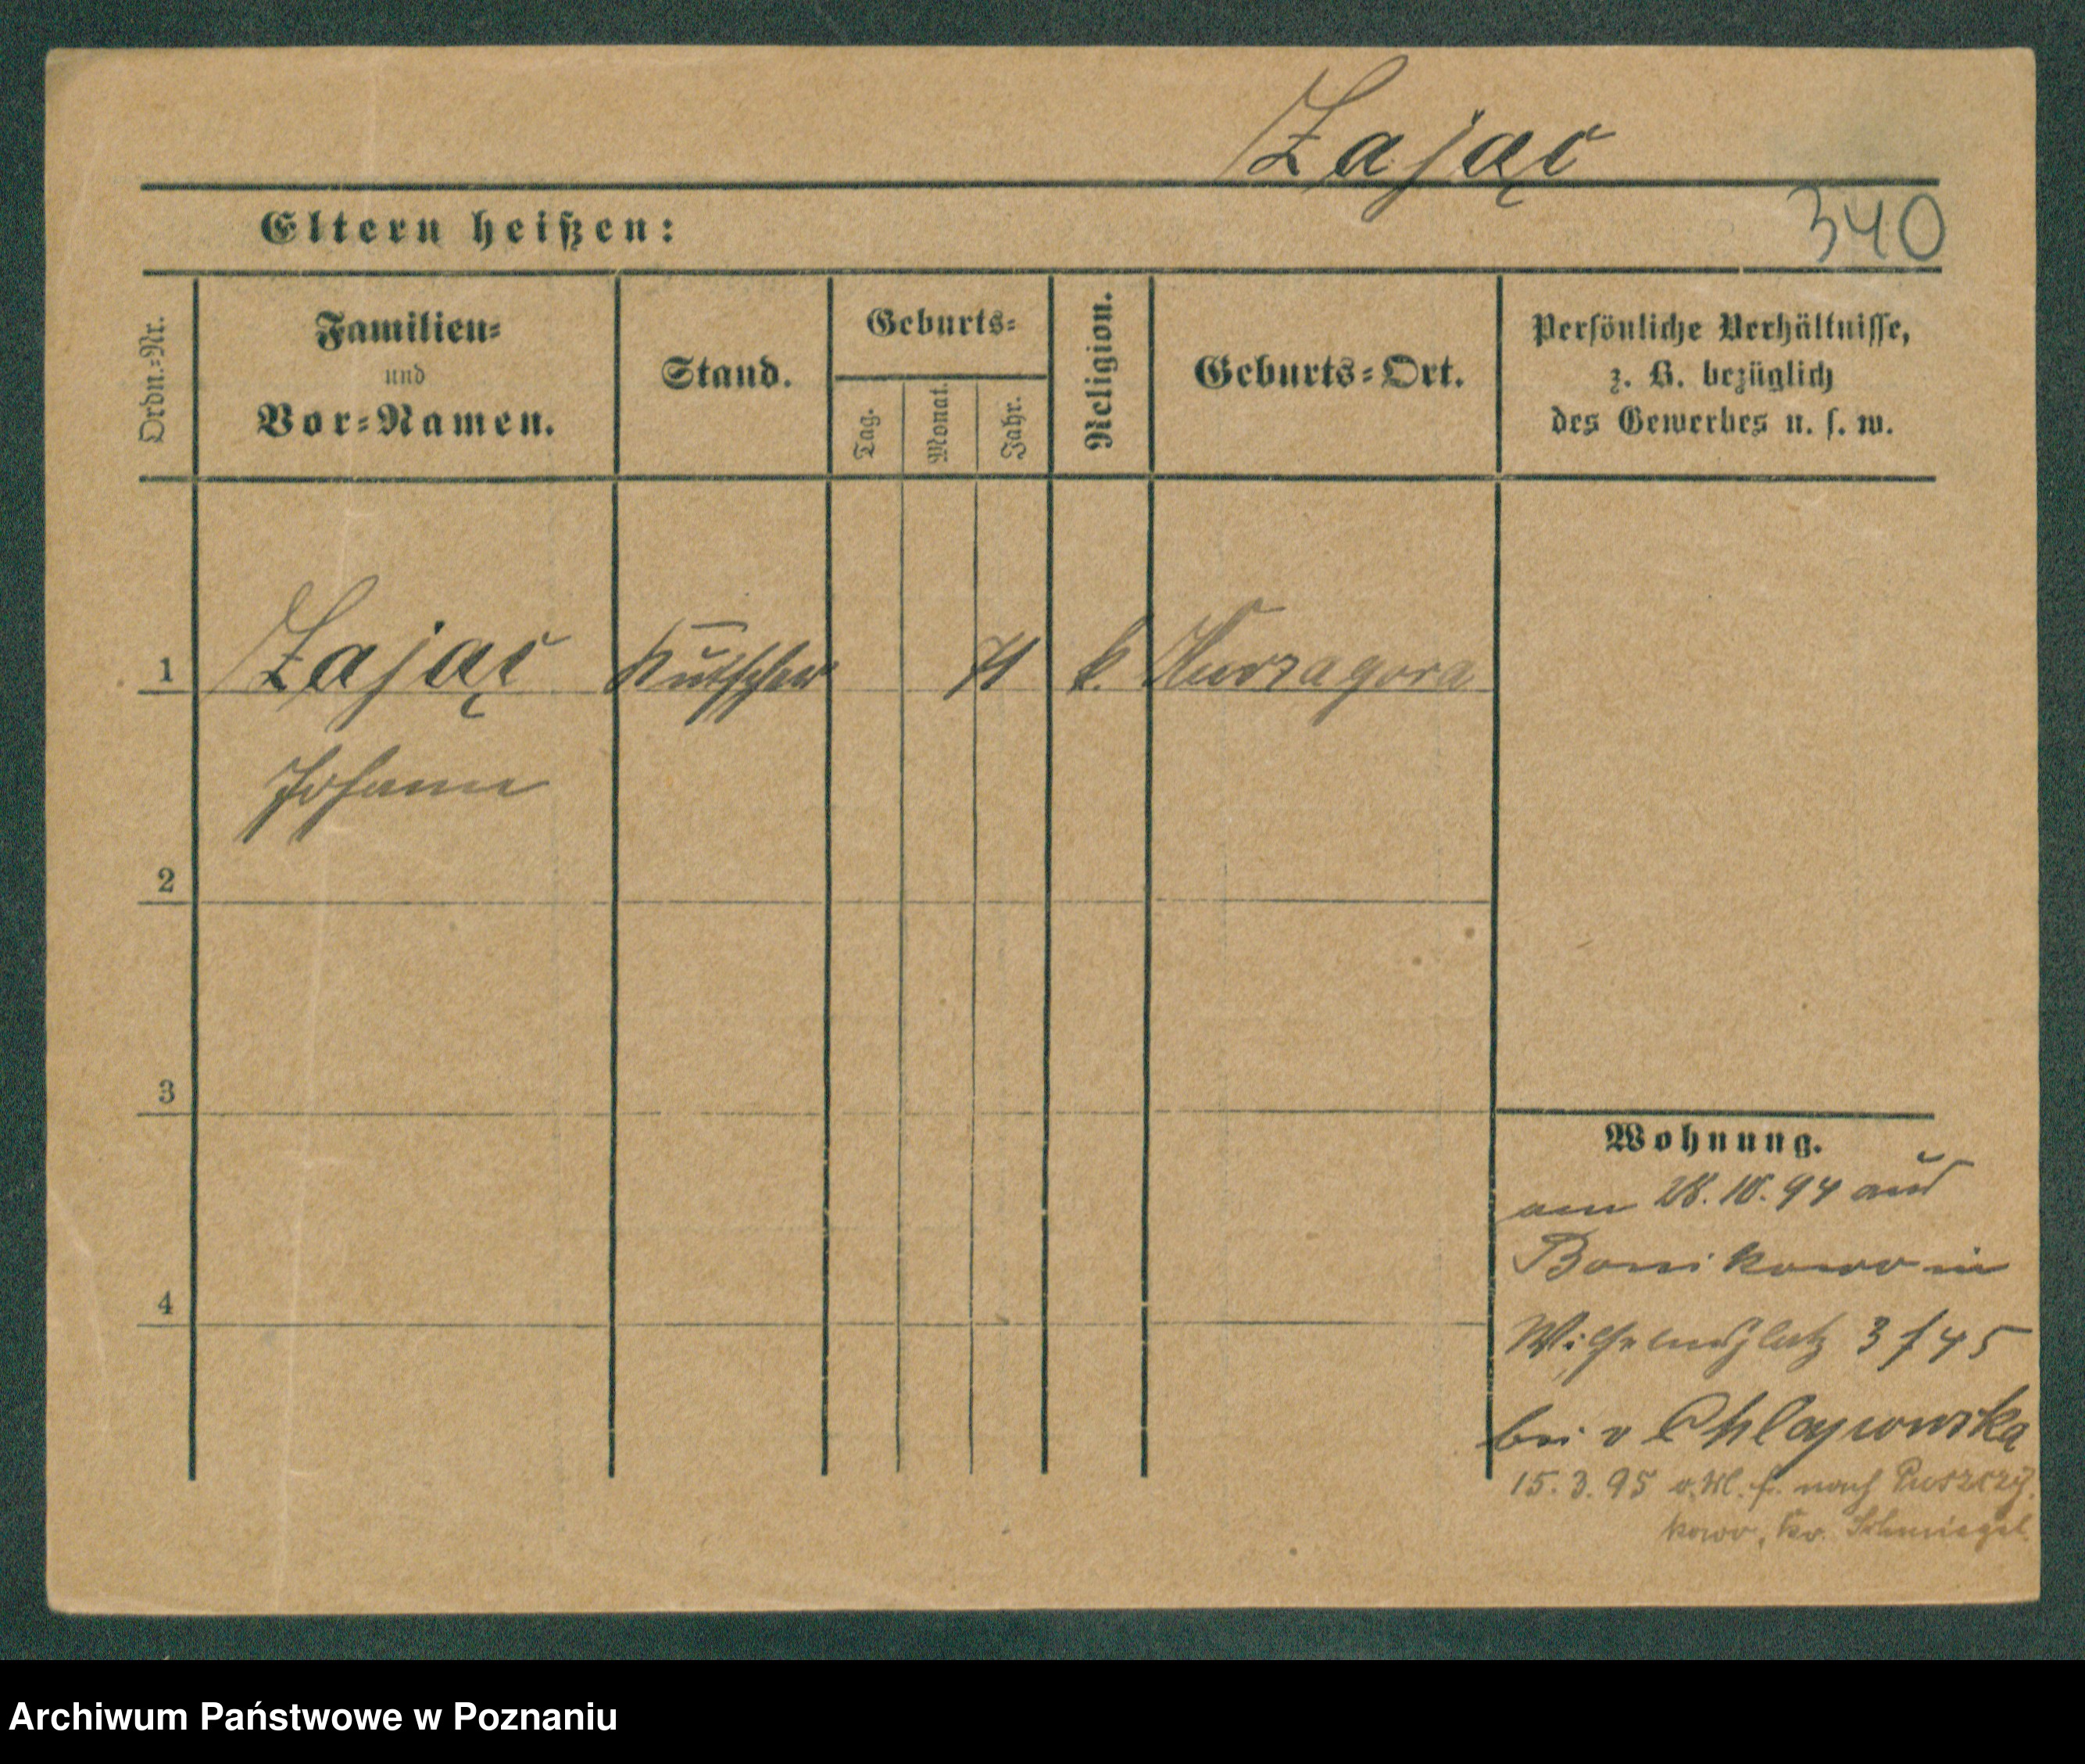 Zając
Eltern heißen:
340
Ordn.=Nr.
Familien=
und
Vor=Namen.
Stand.
Geburts=
Tag.
Monat.
Jahr.
Religion.
Geburts=Ort.
Persönliche Verhältnisse,
z. B. bezüglich
des Gewerbes u. s. w.
1
Zając
Kutscher
71
k.
Kurzagora
Johann
2
3
4
Wohnung.
am 28.10.94 aus
Bonikowo in
Wilhelmsplatz 3 f 45
bei v Chlapowska
15.3.95 nach
kowo, Kr. Schmiegel.
Archiwum Państwowe w Poznaniu